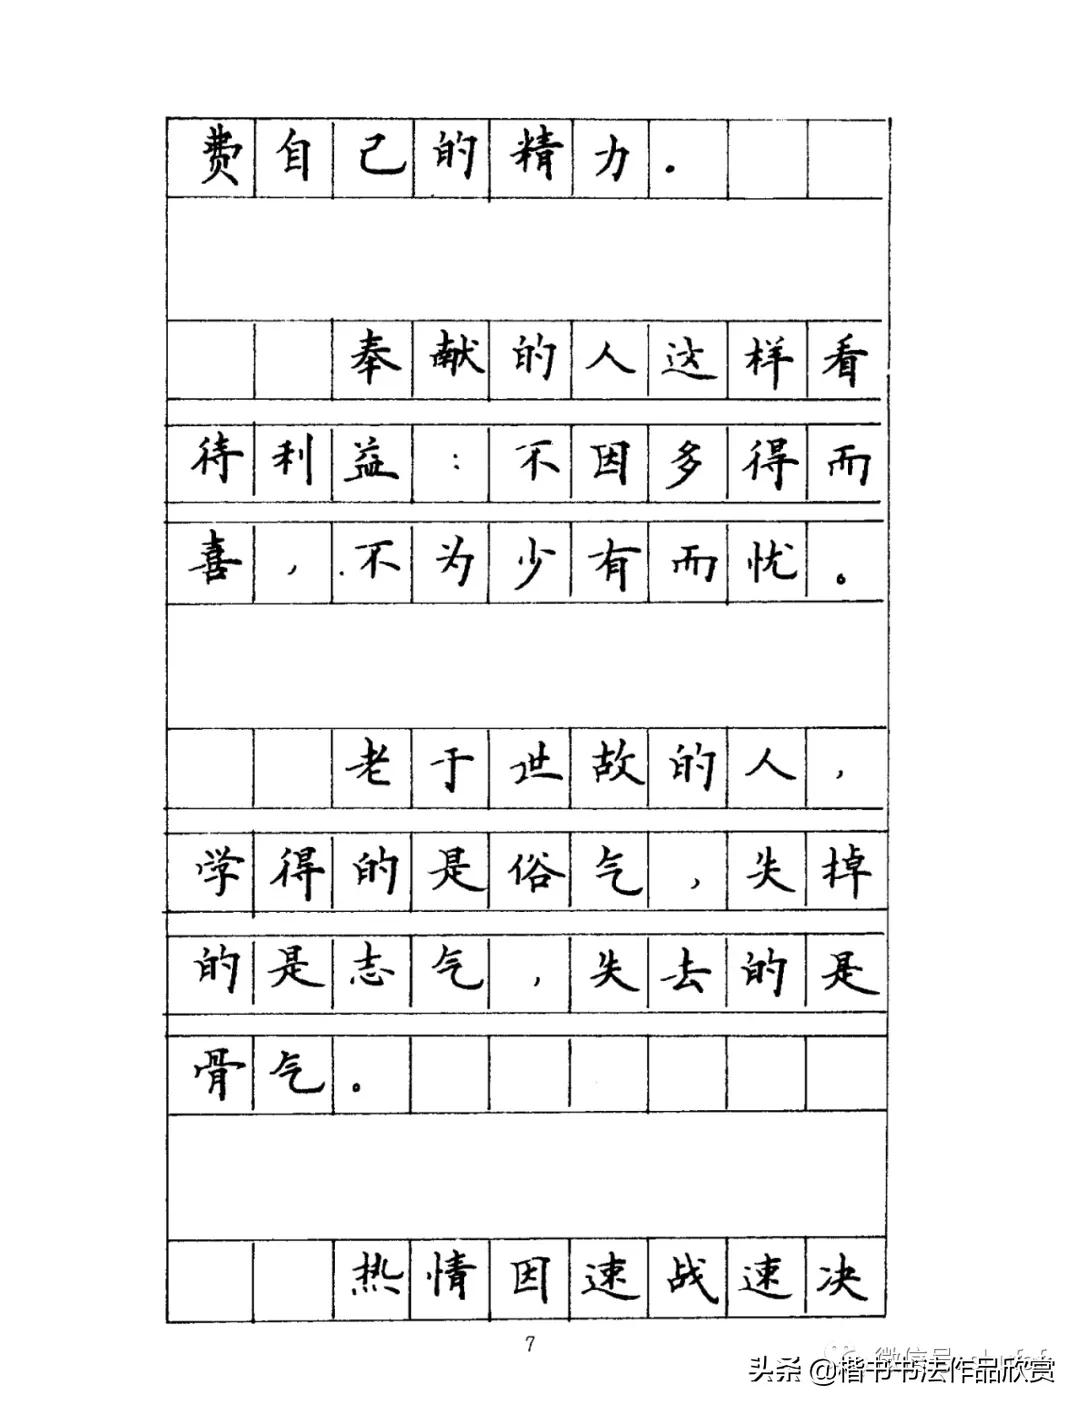 费自己的精力.
奉献的人这样看
待利益:不因多得而
喜,不为少有而忧。
老于世故的人,
学得的是俗气,失掉
的是志气,失去的是
骨气。
热情因速战速决
7
头条 @楷书书法作品欣赏